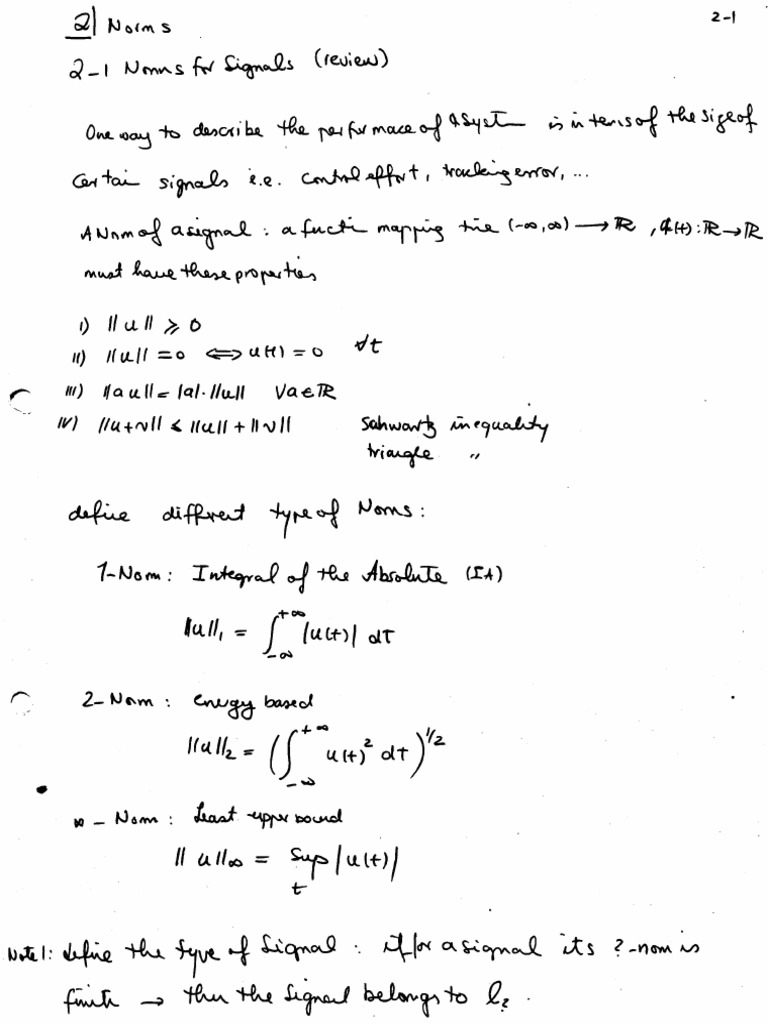 2-1
2| Norms
2-1 Norms for Signals (review)
One way to describe the performace of a System is in terms of the size of
Certain signals i.e. control effort, tracking error, ...
A Norm of a signal : a functi mapping time (-∞,∞) → ℝ , u(t): ℝ→ℝ
must have these properties
i) ||u|| ≥ 0
ii) ||u|| = 0 ⟺ u(t) = 0 ∀t
iii) ||au|| = |a|·||u|| ∀a∈ℝ
iv) ||u+v|| ≤ ||u|| + ||v|| Schwartz inequality
triangle "
define different type of Norms :
1-Norm : Integral of the Absolute (IA)
||u||₁ = ∫_{-∞}^{+∞} |u(t)| dt
2-Norm : energy based
||u||₂ = (∫_{-∞}^{+∞} u(t)² dt)^{1/2}
∞-Norm : Least upper bound
||u||∞ = Sup |u(t)|
t
Note 1: define the type of Signal : if for a signal its ?-norm is
finite → then the Signal belongs to l_?.